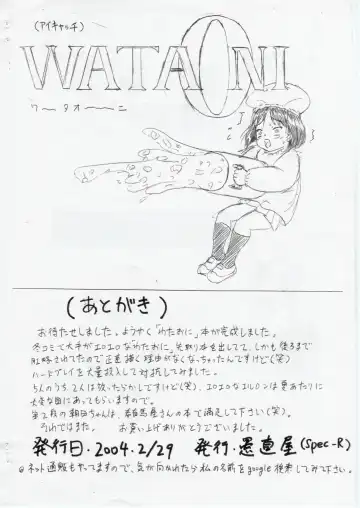 (アイキャッチ)
WATAONI
ワ〜タオ〜ニ
(あとがき)
お待たせしました。ようやく「わたおに」本が完成しました。
冬コミで大手がエロエロな「わたおに」先取り本を出してて、しかも
されてたので正直描く理由がなくなっちゃったんですけど(笑)
ハードプレイを大量投入して対抗してみました。
5人のうち、2人は放ったらかしですけど(笑)、エロエロなエルルンは夏あたりに
大変な目にあってもらいますので。
第2夜の朝日ちゃんは、さんの本で満足して下さい(笑)。
それではまた。 お買い上げありがとうございました。
発行日・2004.2/29 発行・愚直屋(Spec-R)
@ネット通販もやってますので、気が向かれたら私の名前をgoogle検索してみて下さい。